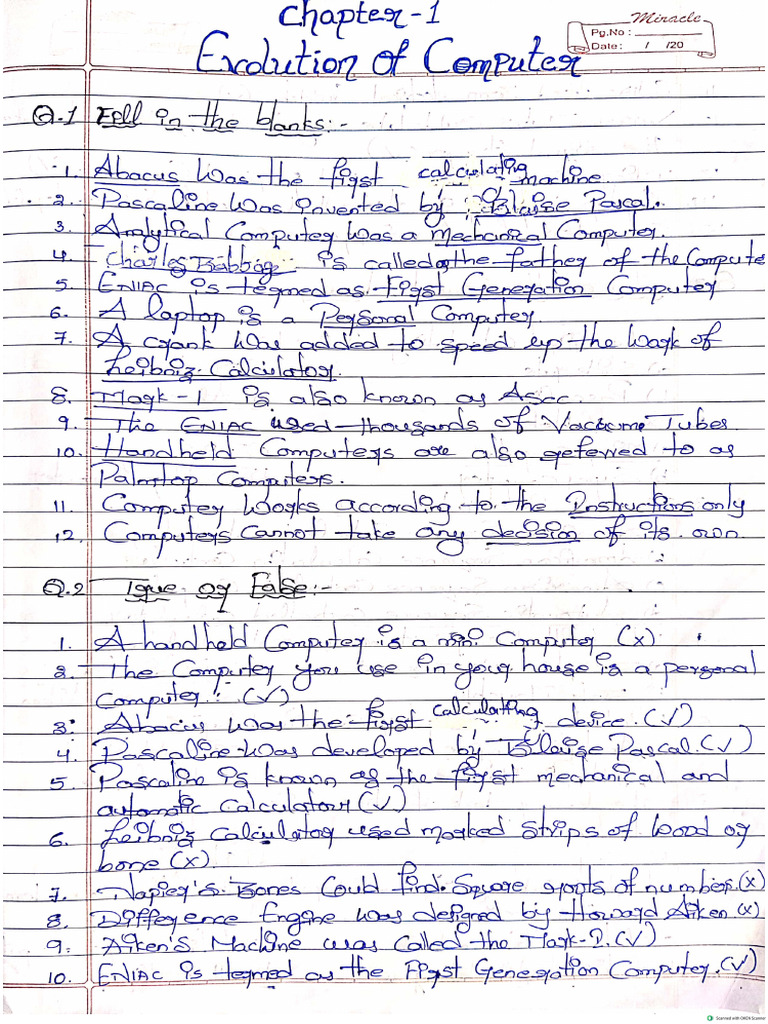 Chapter-1
Miracle
Pg.No :
Date : / /20
Evolution of Computer
Q.1 Fill in the blanks:-
1. Abacus was the first calculating machine.
2. Pascaline was invented by Blaise Pascal.
3. Analytical Computer was a Mechanical Computer.
4. Charles Babbage is called as the father of the Compute
5. ENIAC is termed as First Generation Computer
6. A laptop is a Personal Computer
7. A crank was added to speed up the work of
Leibniz Calculator.
8. Mark-1 is also known as Ascc.
9. The ENIAC used thousands of Vacuume Tubes
10. Handheld Computers are also referred to as
Palmtop Computers.
11. Computer works according to the Instructions only
12. Computers cannot take any decision of its own.
Q.2 True or False:-
1. A handheld Computer is a mini Computer (x)
2. The Computer you use in your house is a personal
Computer. (✓)
3. Abacus was the first calculating device. (✓)
4. Pascaline was developed by Blaise Pascal. (✓)
5. Pascaline is known as the first mechanical and
automatic calculator (✓)
6. Leibniz calculator used marked strips of wood or
bone (x).
7. Napier's Bones could find square roots of numbers. (x)
8. Difference Engine was designed by Howard Aiken (x)
9. Aiken's Machine was called the Mark-I. (✓)
10. ENIAC is termed as the First Generation Computer. (✓)
Scanned with OKEN Scanner